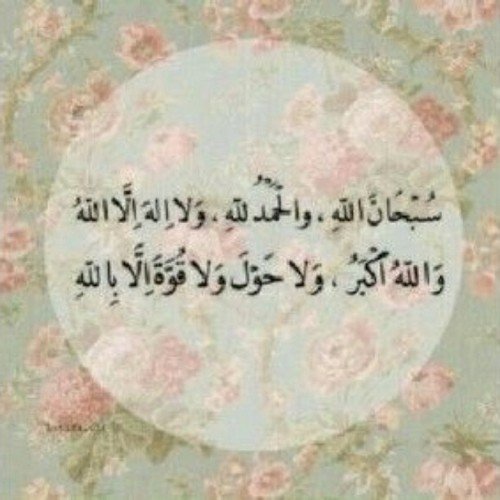 سُبْحَانَ اللهِ ، والْحَمْدُ للهِ ، وَلا اِلهَ اِلَّا اللهُ
وَاللهُ اَكْبَرُ ، وَلا حَوْلَ وَلا قُوَّةَ اِلَّا بِاللهِ